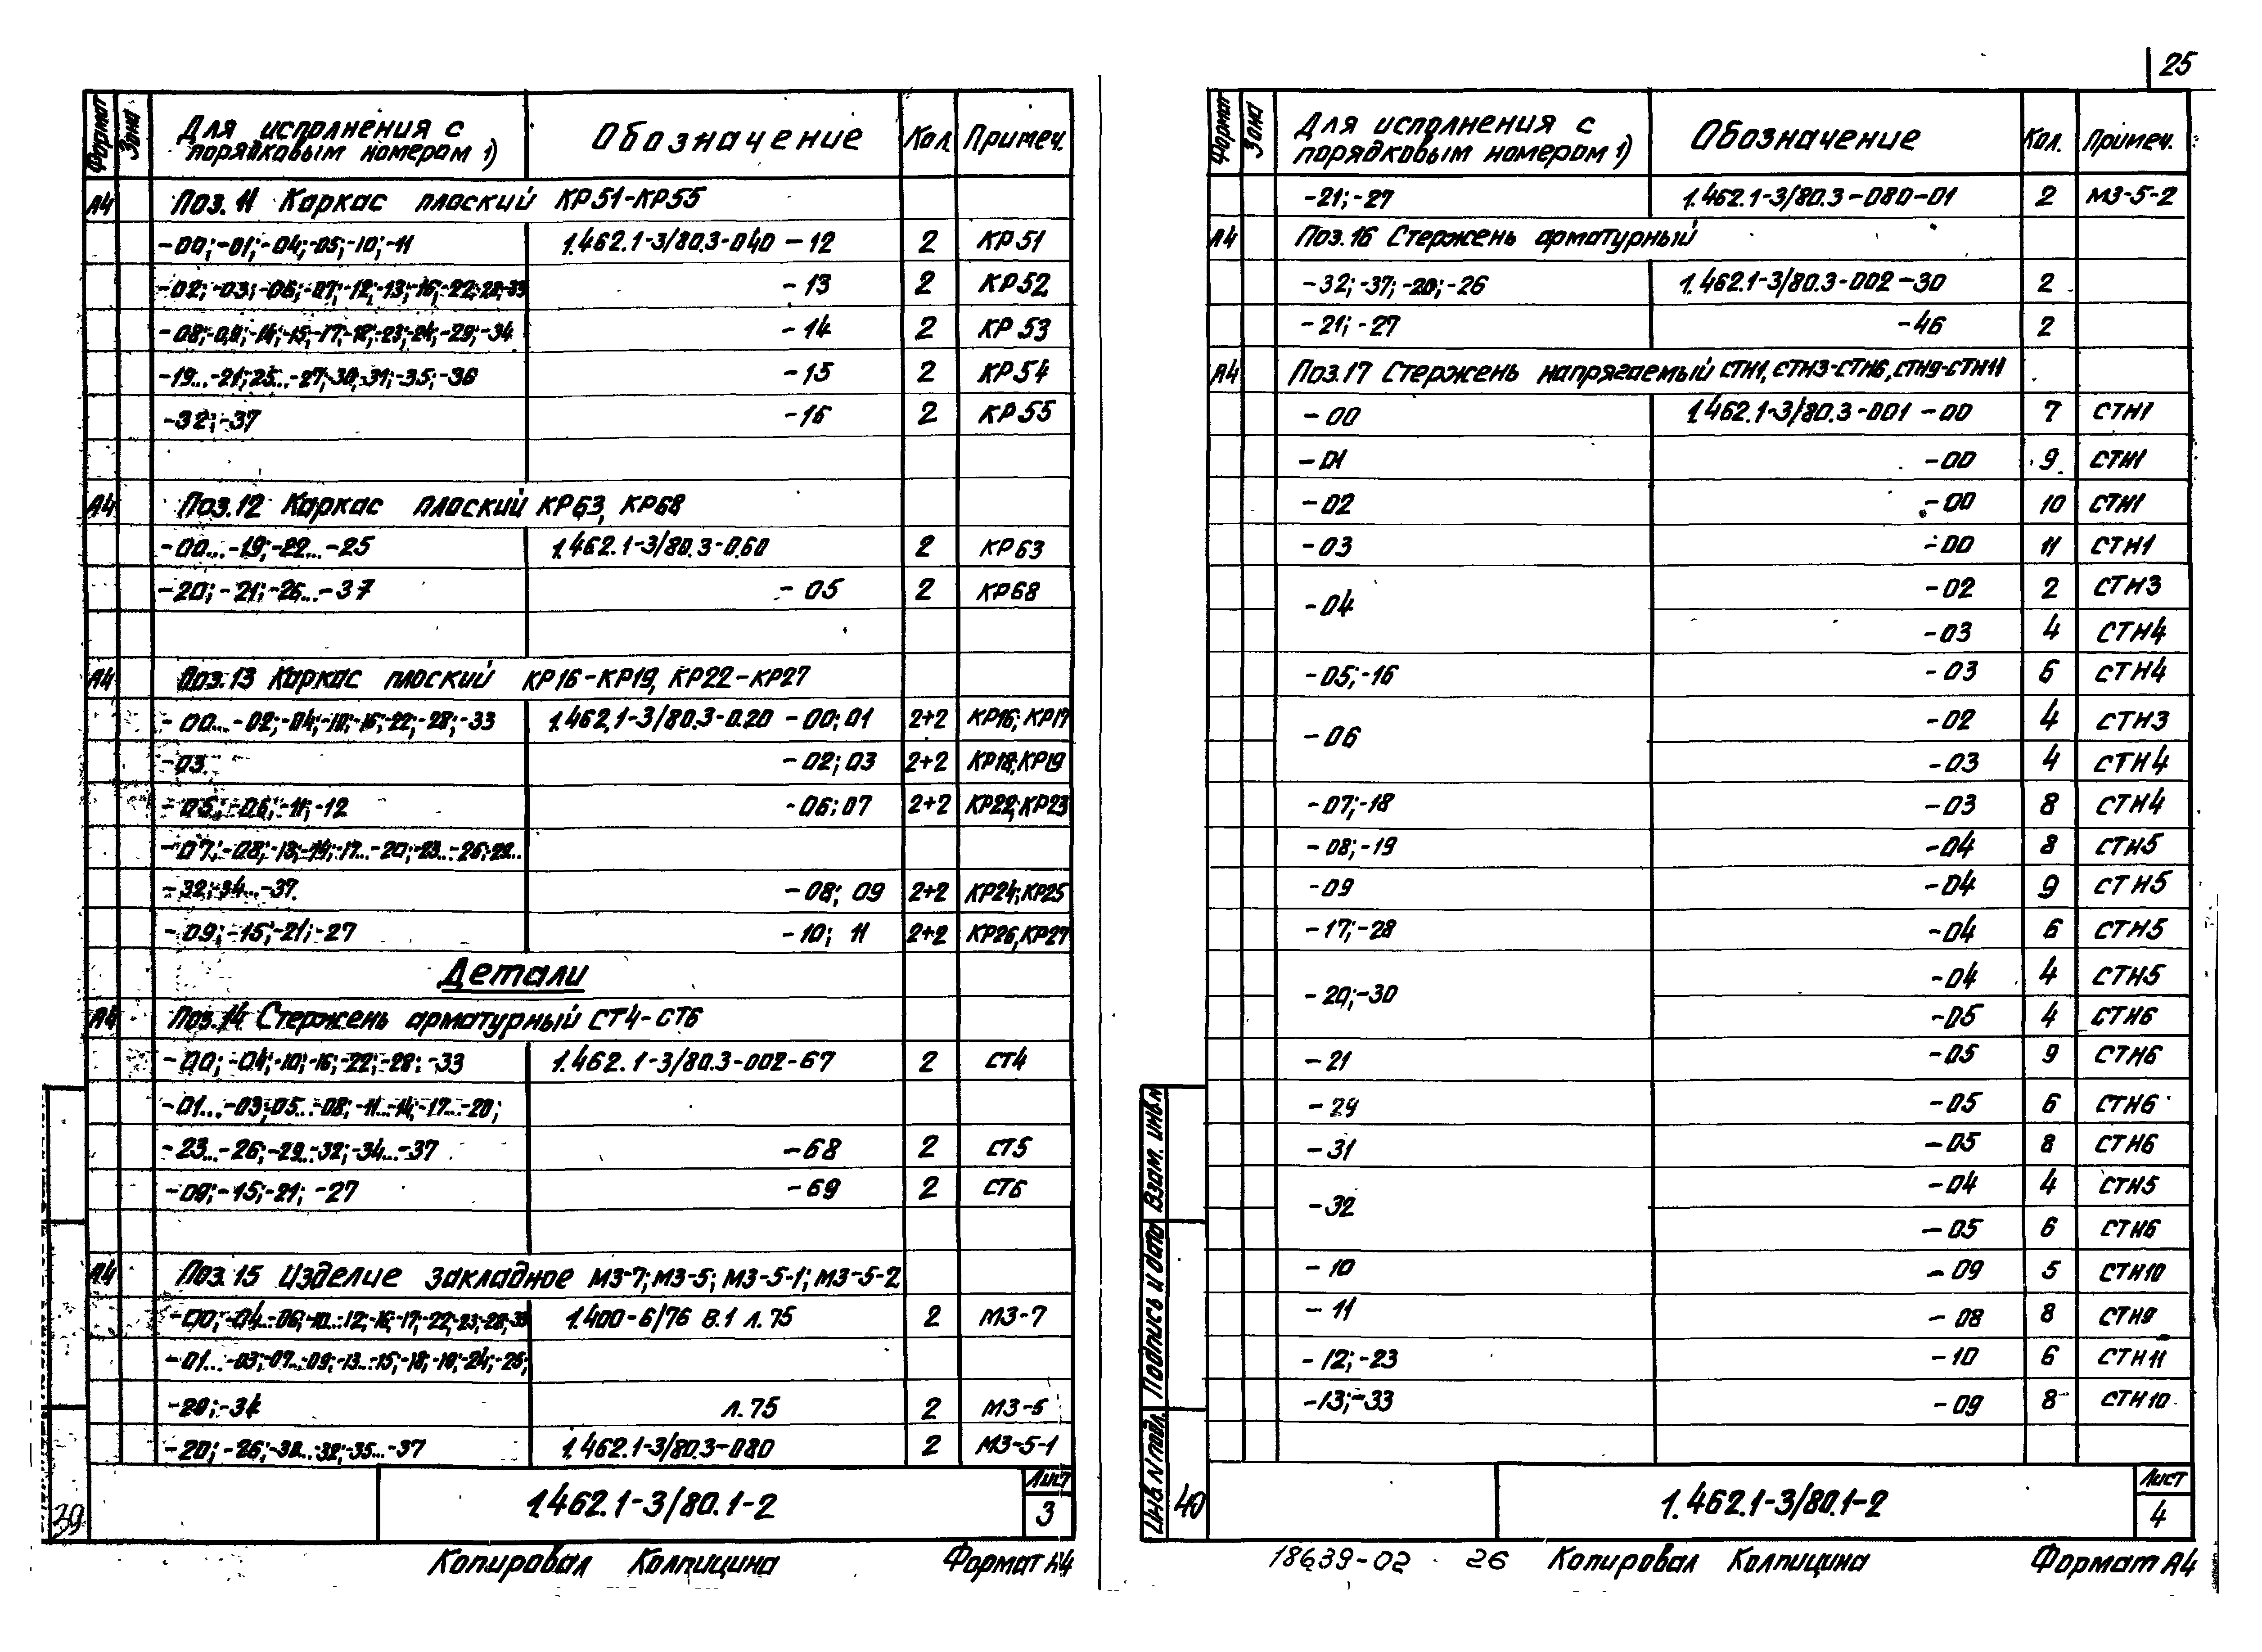 25
Формат Зона Для исполнения с порядковым номером 1) Обозначение Кол. Примеч.
А4 Поз. 11 Каркас плоский КР51-КР55
-00;-01;-04;-05;-10;-11 1.462.1-3/80.3-040 -12 2 КР51
-02;-03;-06;-07;-12;-13;-16;-22;-28;-33 -13 2 КР52
-08;-09;-14;-15;-17;-18;-23;-24;-29;-34 -14 2 КР53
-19...-21;25...-27;-30;-31;-35;-36 -15 2 КР54
-32;-37 -16 2 КР55
А4 Поз.12 Каркас плоский КР63, КР68
-00...-19;-22...-25 1.462.1-3/80.3-060 2 КР63
-20;-21;-26...-37 -05 2 КР68
А4 Поз.13 Каркас плоский КР16-КР19, КР22-КР27
-00...-02;-04;-10;-16;-22;-28;-33 1.462.1-3/80.3-020 -00;01 2+2 КР16;КР17
-03 -02;03 2+2 КР18;КР19
-05;-06;-11;-12 -06;07 2+2 КР22;КР23
-07;-08;-13;-14;-17...-20;-23...-26;-29...
-32;-34...-37. -08; 09 2+2 КР24;КР25
-09;-15;-21;-27 -10; 11 2+2 КР26,КР27
Детали
А4 Поз.14 Стержень арматурный СТ4-СТ6
-00;-04;-10;-16;-22;-28;-33 1.462.1-3/80.3-002-67 2 СТ4
-01...-03;05...-08;-11...-14;-17...-20;
-23...-26;-29...-32;-34...-37 -68 2 СТ5
-09;-15;-21;-27 -69 2 СТ6
А4 Поз.15 Изделие закладное МЗ-7;МЗ-5;МЗ-5-1;МЗ-5-2
-00;-04...-06;-10...-12;-16;-17;-22;-23;-28;-33 1.400-6/76 В.1 л.75 2 МЗ-7
-01...-03;-07...-09;-13...-15;-18;-19;-24;-25;
-29;-34 л.75 2 МЗ-5
-20;-26;-30...-32;-35...-37 1.462.1-3/80.3-080 2 МЗ-5-1
39 1.462.1-3/80.1-2 Лист 3
Копировал Колпицина Формат А4
Формат Зона Для исполнения с порядковым номером 1) Обозначение Кол. Примеч.
-21;-27 1.462.1-3/80.3-080-01 2 МЗ-5-2
А4 Поз.16 Стержень арматурный
-32;-37;-20;-26 1.462.1-3/80.3-002-30 2
-21;-27 -46 2
А4 Поз.17 Стержень напрягаемый СТН1, СТН3-СТН6, СТН9-СТН11
-00 1.462.1-3/80.3-001 -00 7 СТН1
-01 -00 9 СТН1
-02 -00 10 СТН1
-03 -00 11 СТН1
-04 -02 2 СТН3
-03 4 СТН4
-05;-16 -03 6 СТН4
-06 -02 4 СТН3
-03 4 СТН4
-07;-18 -03 8 СТН4
-08;-19 -04 8 СТН5
-09 -04 9 СТН5
-17;-28 -04 6 СТН5
-20;-30 -04 4 СТН5
-05 4 СТН6
-21 -05 9 СТН6
-29 -05 6 СТН6
-31 -05 8 СТН6
-32 -04 4 СТН5
-05 6 СТН6
-10 -09 5 СТН10
-11 -08 8 СТН9
-12;-23 -10 6 СТН11
-13;-33 -09 8 СТН10
Инв.N подл. Подпись и дата Взам. инв.N
40 1.462.1-3/80.1-2 Лист 4
18639-02 26 Копировал Колпицина Формат А4